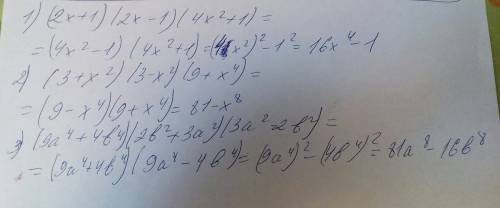 1) (2x+1)(2x-1)(4x²+1)=
=(4x²-1)(4x²+1)=(4x²)²-1²=16x⁴-1
2) (3+x²)(3-x²)(9+x⁴)=
=(9-x⁴)(9+x⁴)=81-x⁸
3) (9a⁴+4b⁴)(2b²+3a²)(3a²-2b²)=
=(9a⁴+4b⁴)(9a⁴-4b⁴)=(9a⁴)²-(4b⁴)²=81a⁸-16b⁸